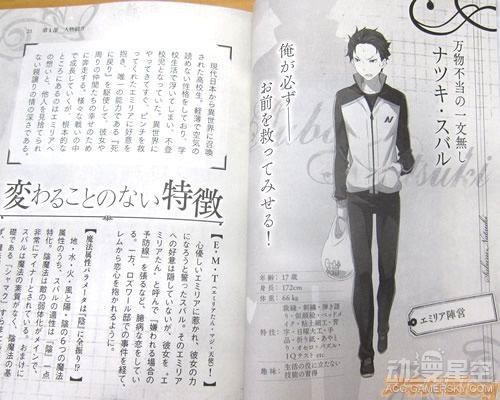 万物不当の一文無し
ナツキ・スバル
俺が必ず――
お前を救ってみせる!
Subaru Natsuki
エミリア陣営
年齢:17歳
身長:172cm
体重:66kg
特性:裁縫・刺繍・弾き語
り・似顔絵・ベッドメ
イク・粘土細工・習
字・日曜大工・手
品・折り紙・あやと
り・オセロ・パズル・
IQテスト etc
趣味:生活の役に立たない
技能の習得
21 第1部 人物紹介
現代日本から異世界に召喚
された高校生。軽薄で空気の
読めない性格をしており、学
校生活で浮いてしまい、不登
校児となっていた。異世界に
やってきてすぐ、ピンチを救
ってくれたエミリアに好意を
抱き、唯一の能力である『死
に戻り』を駆使して、彼女や
周りの仲間たちの幸せのため
に奔走する。様々な戦いの中
で成長していくが、根本的な
ところにあるのはエミリアへ
の想いと、他人を見捨てられ
ない親譲りの情の深さである。
変わることのない特徴
【E・M・T(エミリアたん・マジ・天使)】
心優しいエミリアに惹かれ、彼女の力
になろうと誓ったスバル。そのエミリア
への好意は隠していないが、彼女を『エ
ミリアたん』と呼んで「嫌われる場合の
予防線」を張るなど、臆病な恋をしてい
る。一方、ロズワール邸での事件を経て、
レムから恋心を抱かれるように。
【魔法属性パラメータは『陰』に全振り!?】
地・水・火・風と陽・陰の6つの魔法
属性のうち、スバルの適性は「陰」一点
特化。陰魔法は敵の弱体化がメインで、
非常にマイナーとされている。おまけに
スバルは魔法の素質がなく、陰魔法の基
礎である『シャマク』すら
动漫星空
ACG.GAMERSKY.COM